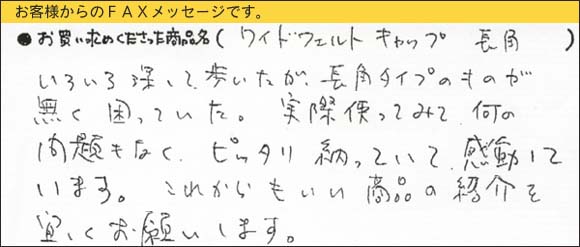 お客様からのＦＡＸメッセージです。
●お買い求めくださった商品名( ワイドウェルト キャップ 長角 )
いろいろ深して歩いたが、長角タイプのものが
無く困っていた。実際使ってみて何の
問題もなく、ピッタリ納っていて、感動して
います。これからもいい商品の紹介を
宜しくお願いします。